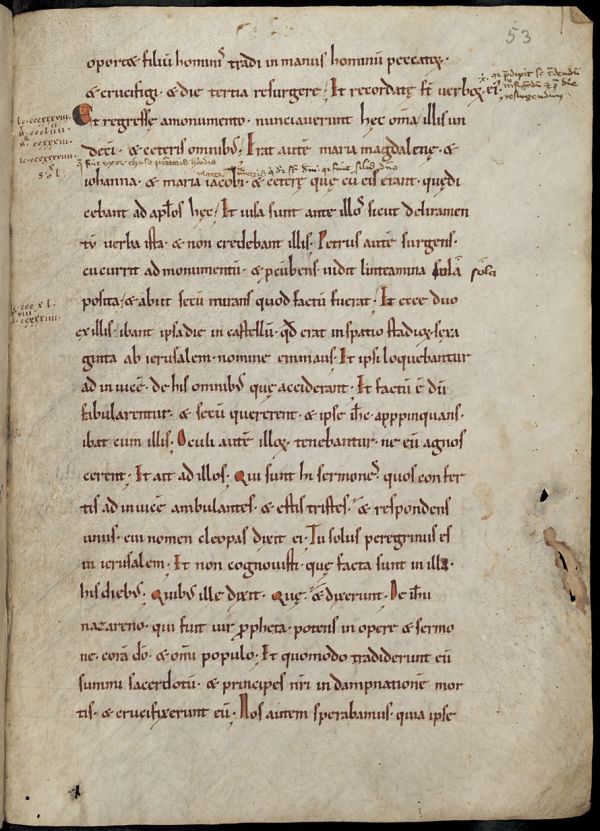 53
oportet filiū hominis tradi in manus hominū peccatoꝝ ·
& crucifigi · & die tertia resurgere ; Et recordatę sī uerboꝝ ei ;
Et regressę amonumento · nunciauerunt hęc om̄a illis un
deci · & ceteris omnibꝰ ; Erat autē maria magdalenę · &
iohanna · & maria iacobi · & ceterę quę cū eis erant · quędi
cebant ad apłos hęc ; Et uisa sunt ante illos sicut deliramen
tū uerba ista · & non credebant illis · Petrus autē surgens ·
cucurrit ad monumentū · & pcūbens uidit linteamina sola
sola
posita · & abiit secū mirans quod factū fuerat · Et ecce duo
ex illis · ibant ipsa die in castellū · qđ erat in spatio stadioꝝ sexa
ginta ab ierusalem · nomine emmaus ; Et ipsi loquebantur
ad inuicē · de his omnibꝰ quę acciderant ; Et factū ē dū
fabularentur · & secū quererent · & ipse ih̄c · appropinquans ·
ibat cum illis ; Oculi autē illoꝝ · tenebantur · ne eū agnos
cerent ; Et ait ad illos · Qui sunt hi sermones quos confer
tis ad inuicē ambulantes · & estis tristes · & respondens
unus · cui nomen cleopas dixit ei · Tu solus peregrinus es
in ierusalem ; Et non cognouisti · quę facta sunt in illa
his diebꝰ ; Quibꝰ ille dixit · Quę · & dixerunt · De ih̄u
nazareno · qui fuit uir propheta · potens in opere & sermo
ne · corā dō · & om̄i populo ; Et quomodo tradiderunt eū
summi sacerdotū · & principes nr̄i in dampnationē mor
tis · & crucifixerunt eū ; Nos autem sperabamus · quia ipse